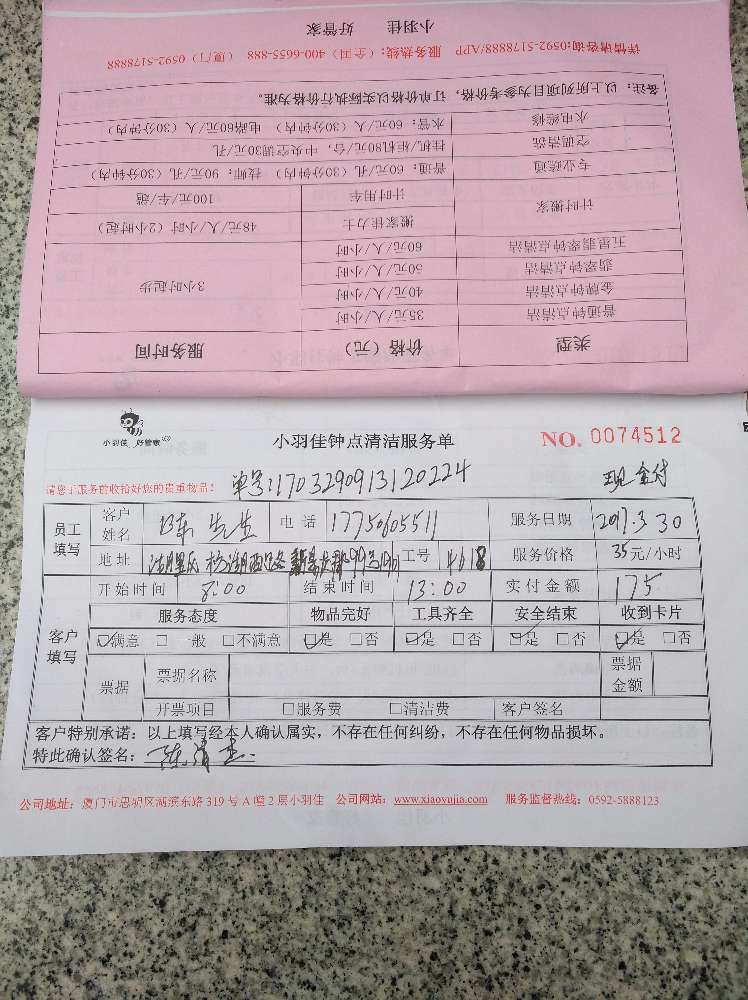 小羽佳 好管家
详情请咨询:0592-5178888/APP 服务热线:(全国)400-6655-888 (厦门)0592-5178888
类型 价格(元) 服务时间
普通钟点清洁 35元/人/小时 3小时起步
金牌钟点清洁 40元/人/小时
翡翠钟点清洁 50元/人/小时
五星翡翠钟点清洁 60元/人/小时
计时搬家 搬家佳力士 48元/人/小时(2小时起)
计时用车 100元/车/趟
专业疏通 普通:60元/孔(30分钟内) 技师:90元/孔(30分钟内)
空调清洗 挂机/柜机80元/台,中央空调30元/孔
水电维修 水管:60元/人(30分钟内) 电路60元/人(30分钟内)
备注:以上所列项目为参考价格,订单价格以实际执行价格为准。
小羽佳 好管家
小羽佳钟点清洁服务单
NO. 0074512
请您于服务前收拾好您的贵重物品!
单号:1703290913120224
现金付
员工填写 客户姓名 陈先生 电话 17750605511 服务日期 2017.3.30
地址 湖里区 工号 4618 服务价格 35元/小时
客户填写 开始时间 8:00 结束时间 13:00 实付金额 175
服务态度 物品完好 工具齐全 安全结束 收到卡片
☑满意 □一般 □不满意 ☑是 □否 ☑是 □否 ☑是 □否 ☑是 □否
票据 票据名称 票据金额
开票项目 □服务费 □清洁费 客户签名
客户特别承诺:以上填写经本人确认属实,不存在任何纠纷,不存在任何物品损坏。
特此确认签名:陈清
公司地址:厦门市思明区湖滨东路319号A幢2层小羽佳 公司网站:www.xiaoyujia.com 服务监督热线:0592-5888123